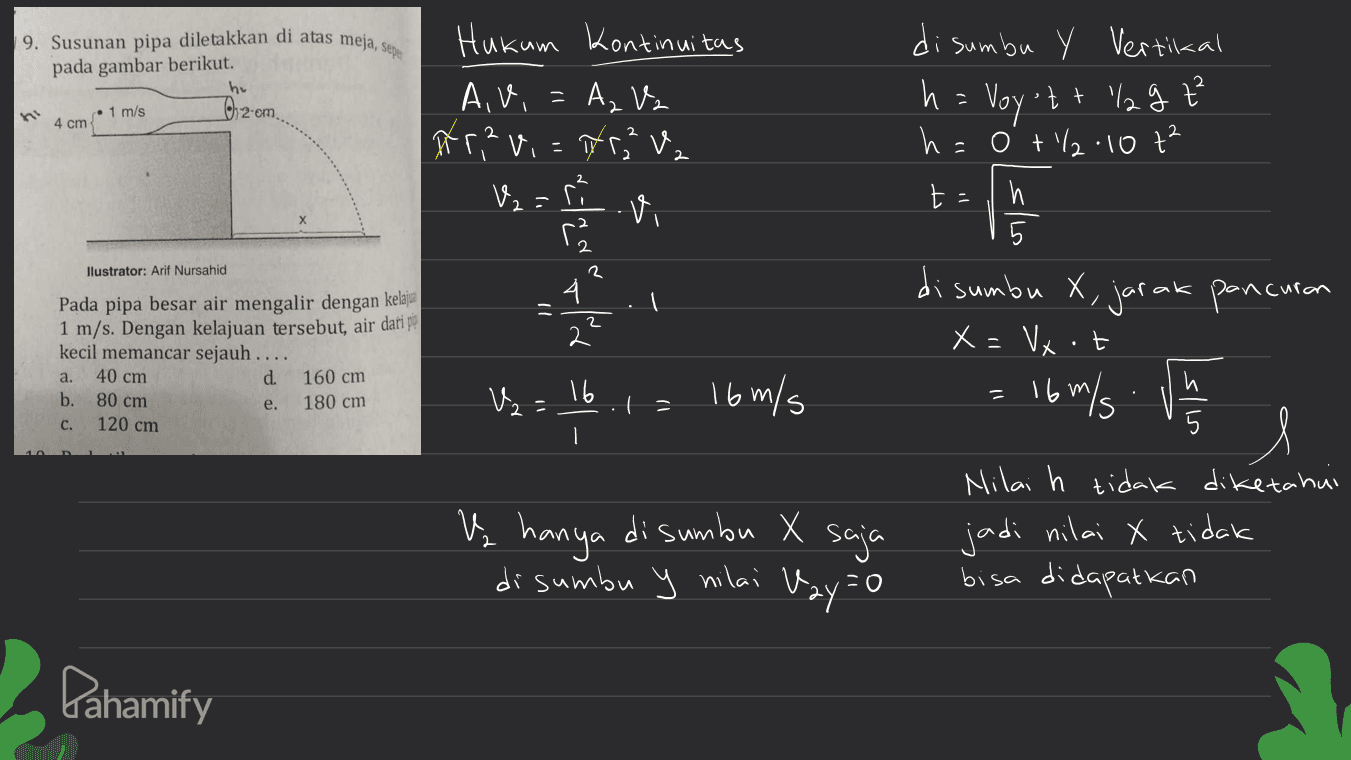 9. Susunan pipa diletakkan di atas meja,
pada gambar berikut.
h1
4 cm
1 m/s
2 cm
x
Ilustrator: Arif Nursahid
Pada pipa besar air mengalir dengan
1 m/s. Dengan kelajuan tersebut, air dari
kecil memancar sejauh ....
a. 40 cm
b. 80 cm
c. 120 cm
d. 160 cm
e. 180 cm
Hukum Kontinuitas
A₁V₁ = A₂V₂
πr₁² V₁ = πr₂² V₂
V₂ = r₁²/r₂² · V₁
= 4²/2² · 1
V₂ = 16/1 · 1 = 16 m/s
V₂ hanya disumbu X saja
disumbu y nilai V₂y=0
disumbu y Vertikal
h = Voy·t + 1/2 g t²
h = 0 + 1/2 · 10 t²
t = √(h/5)
disumbu X, jarak pancuran
X = Vx · t
= 16 m/s · √(h/5)
Nilai h tidak diketahui
jadi nilai X tidak
bisa didapatkan
Pahamify